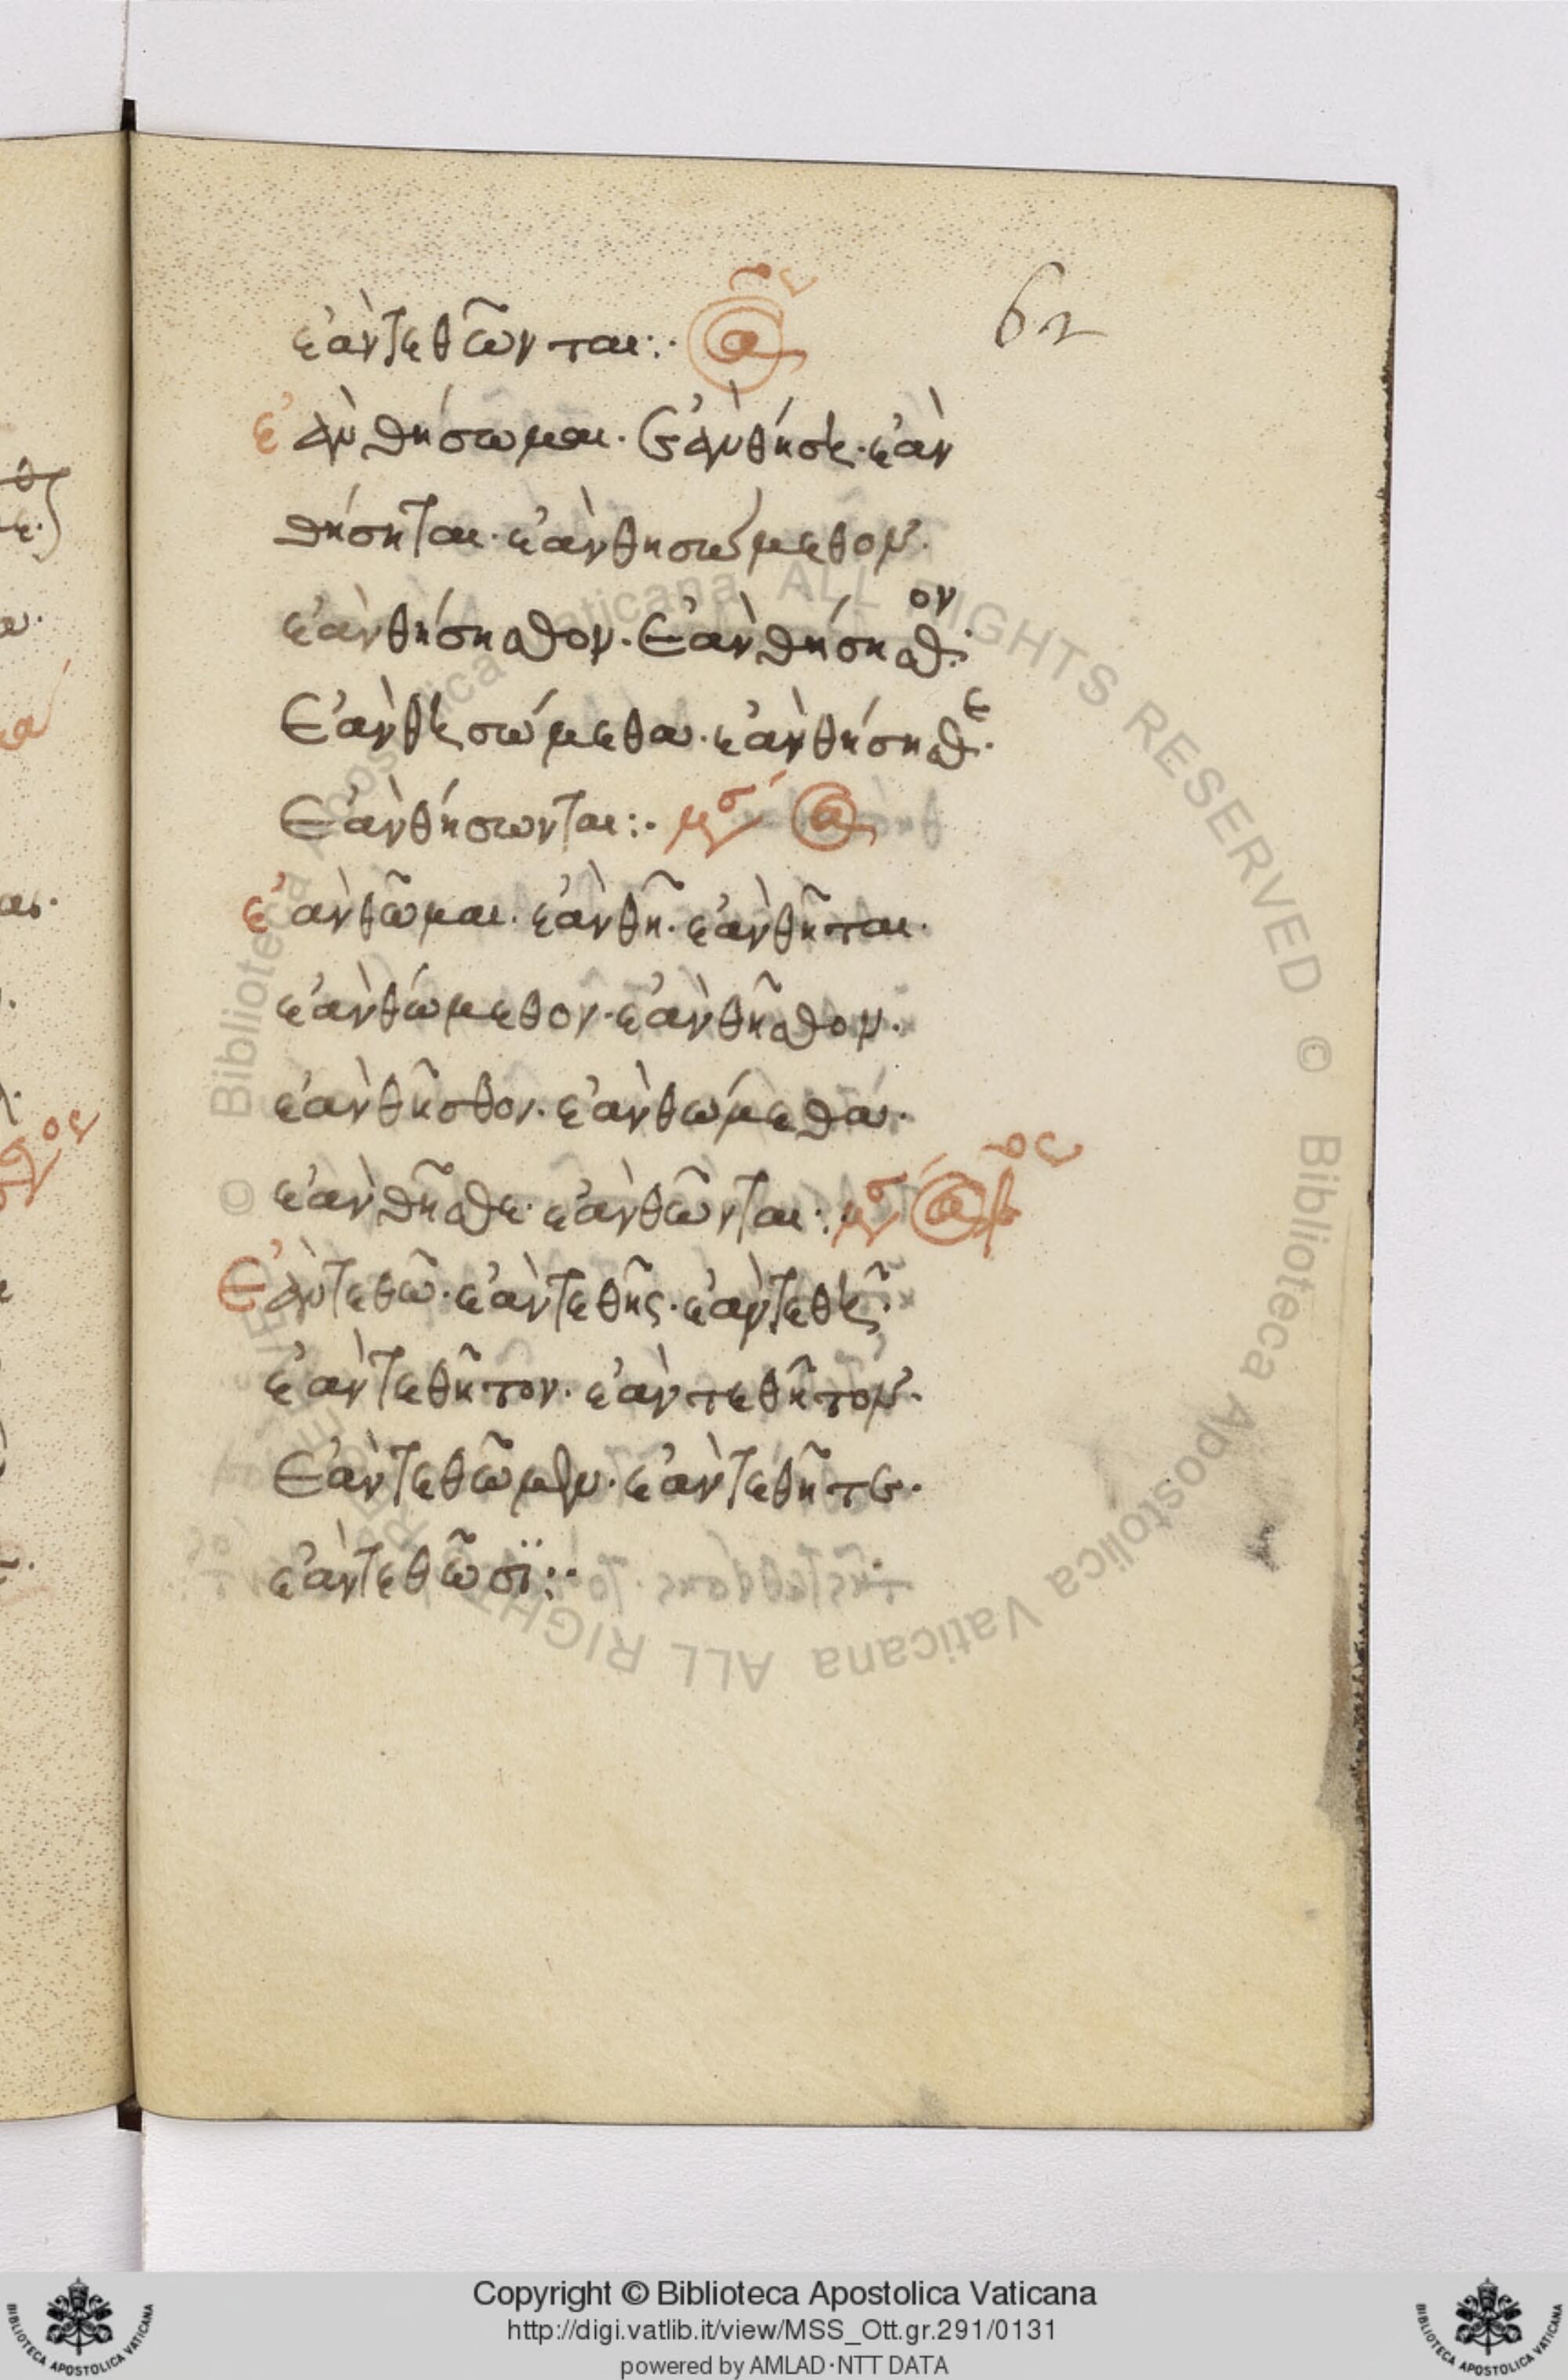 62
ἐὰν τεθῶνται:· ἀ
ἐὰν θήσωμαι· ἐὰν θήσῃ· ἐὰν
θήσηται· ἐὰν θησώμεθον·
ἐὰν θήσησθον· ἐὰν θήσησθον:
ἐὰν θησώμεθα· ἐὰν θήσησθε·
ἐὰν θήσωνται:· μσ ἀ
ἐὰν θῶμαι· ἐὰν θῆ· ἐὰν θῆται·
ἐὰν θώμεθον· ἐὰν θῆσθον·
ἐὰν θῆσθον· ἐὰν θώμεθα·
ἐὰν θῆσθε· ἐὰν θῶνται:· μσ ἀ β
ἐὰν τεθῶ· ἐὰν τεθῆς· ἐὰν τεθῆ·
ἐὰν τεθῆτον· ἐὰν τεθῆτον·
ἐὰν τεθῶμεν· ἐὰν τεθῆτε·
ἐὰν τεθῶσϊ:·
© Biblioteca Apostolica Vaticana ALL RIGHTS RESERVED © Biblioteca Apostolica Vaticana ALL RIGHTS RESERVED
Copyright © Biblioteca Apostolica Vaticana
http://digi.vatlib.it/view/MSS_Ott.gr.291/0131
powered by AMLAD·NTT DATA
BIBLIOTECA APOSTOLICA VATICANA
BIBLIOTECA APOSTOLICA VATICANA